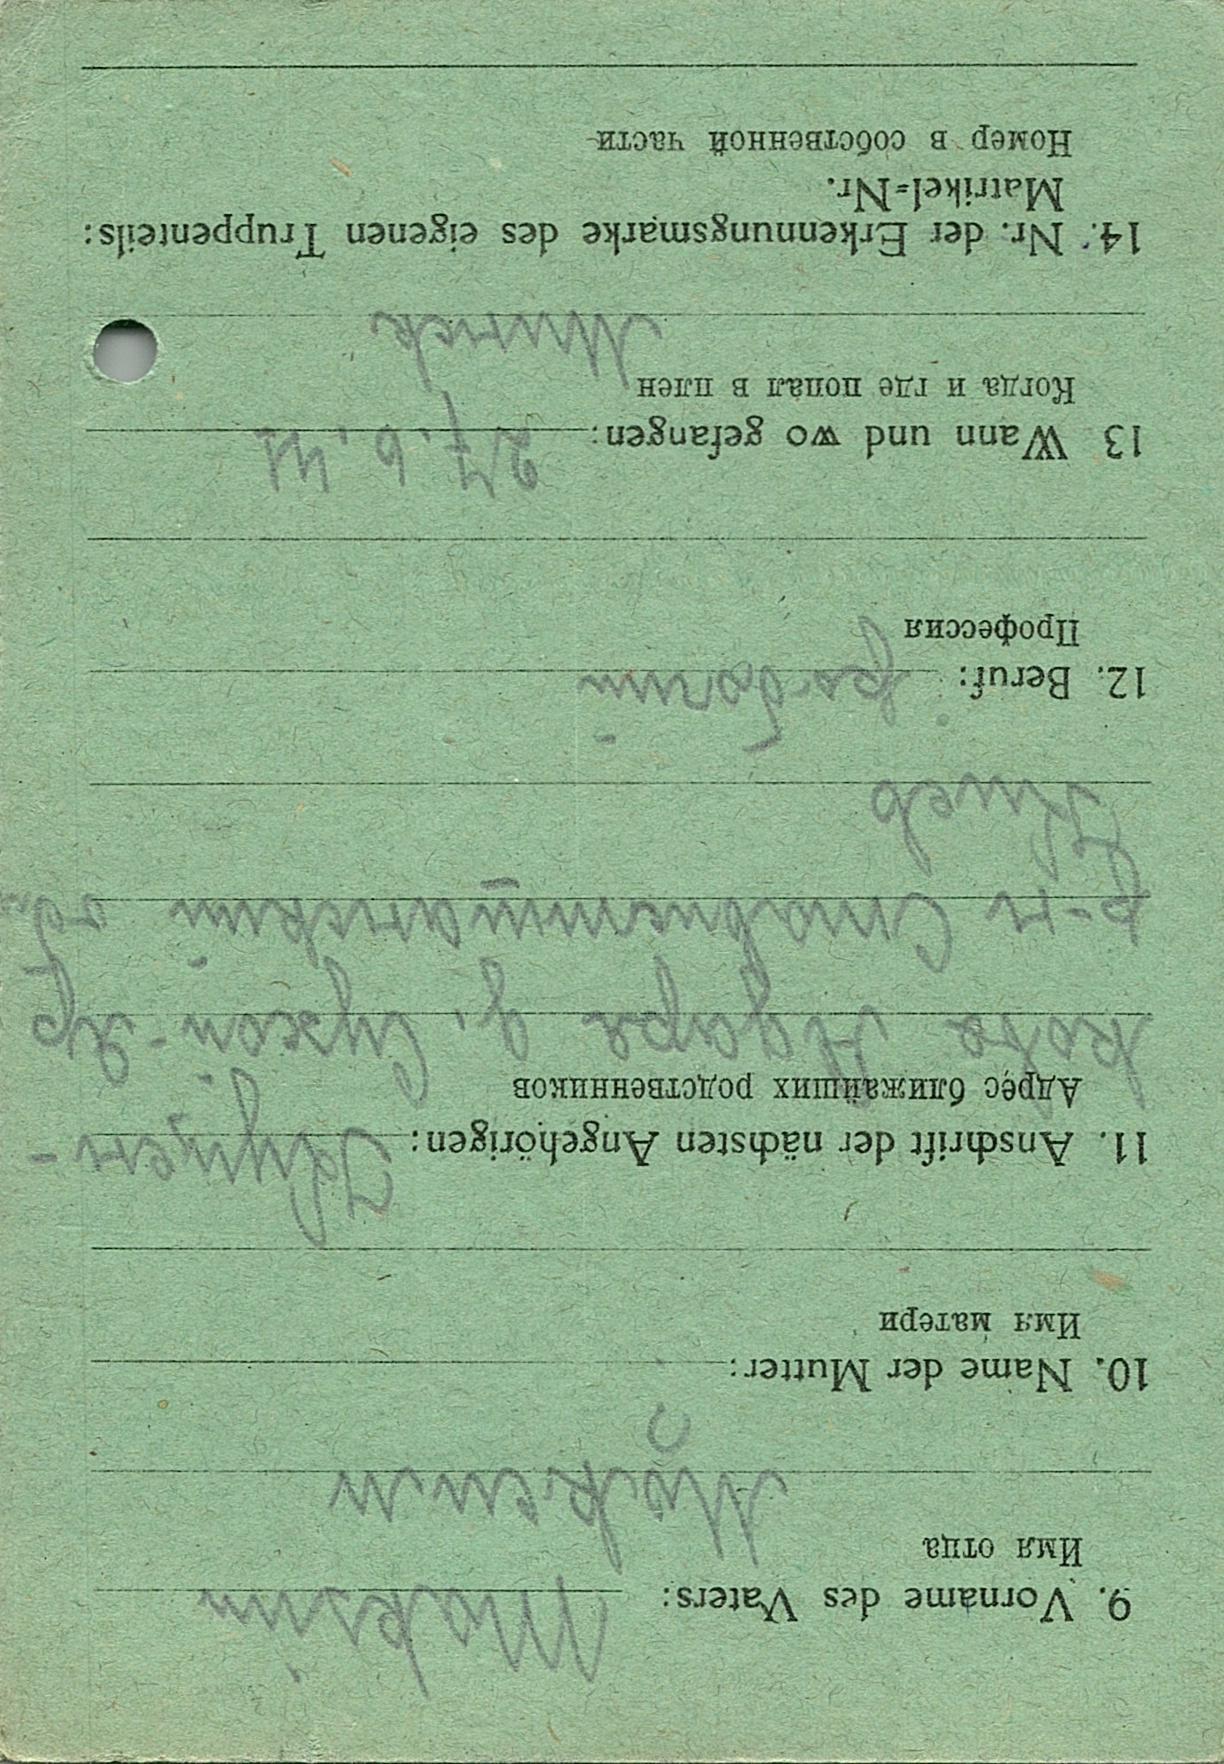 9. Vorname des Vaters: Maksim
Имя отца
Максим
10. Name der Mutter: ?
Имя матери
11. Anschrift der nächsten Angehörigen:
Адрес ближайших родственников
кова д. Сухой-Яр
р-н Ставищанский
Киев
12. Beruf: работий
Профессия
13 Wann und wo gefangen: 27. 6. 41
Когда и где попал в плен
Минск
14. Nr. der Erkennungsmarke des eigenen Truppenteils:
Matrikel=Nr.
Номер в собственной части